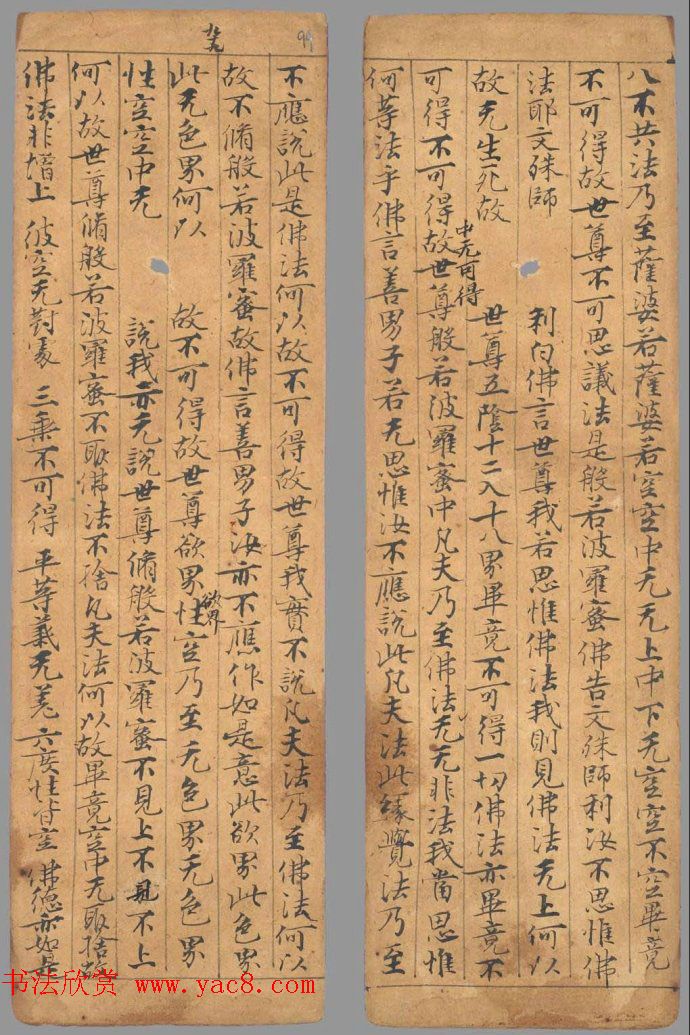 八不共法乃至薩婆若薩婆若空空中无无上中下无空空不空畢竟
不可得故世尊不可思議法是般若波羅蜜佛告文殊師利汝不思惟佛
法耶文殊師 利白佛言世尊我若思惟佛法我則見佛法无上何以
故无生死故 世尊五陰十二入十八界畢竟不可得一切佛法亦畢竟不
中无可得
可得不可得故世尊般若波羅蜜中凡夫乃至佛法无无非法我當思惟
何等法乎佛言善男子若无思惟汝不應說此凡夫法此緣覺法乃至
99
九九
不應說此是佛法何以故不可得故世尊我實不說凡夫法乃至佛法何以
故不脩般若波羅蜜故佛言善男子汝亦不應作如是意此欲界此色界
此无色界何以 故不可得故世尊欲界性空乃至无色界无色界
欲界
性空空中无 說我亦无說世尊脩般若波羅蜜不見上不見不上
何以故世尊脩般若波羅蜜不取佛法不捨凡夫法何以故畢竟空中无取捨故
佛法非增上 彼空无對處 三乘不可得 平等義无差 六度性皆空 佛德亦如是
书法欣赏 www.yac8.com